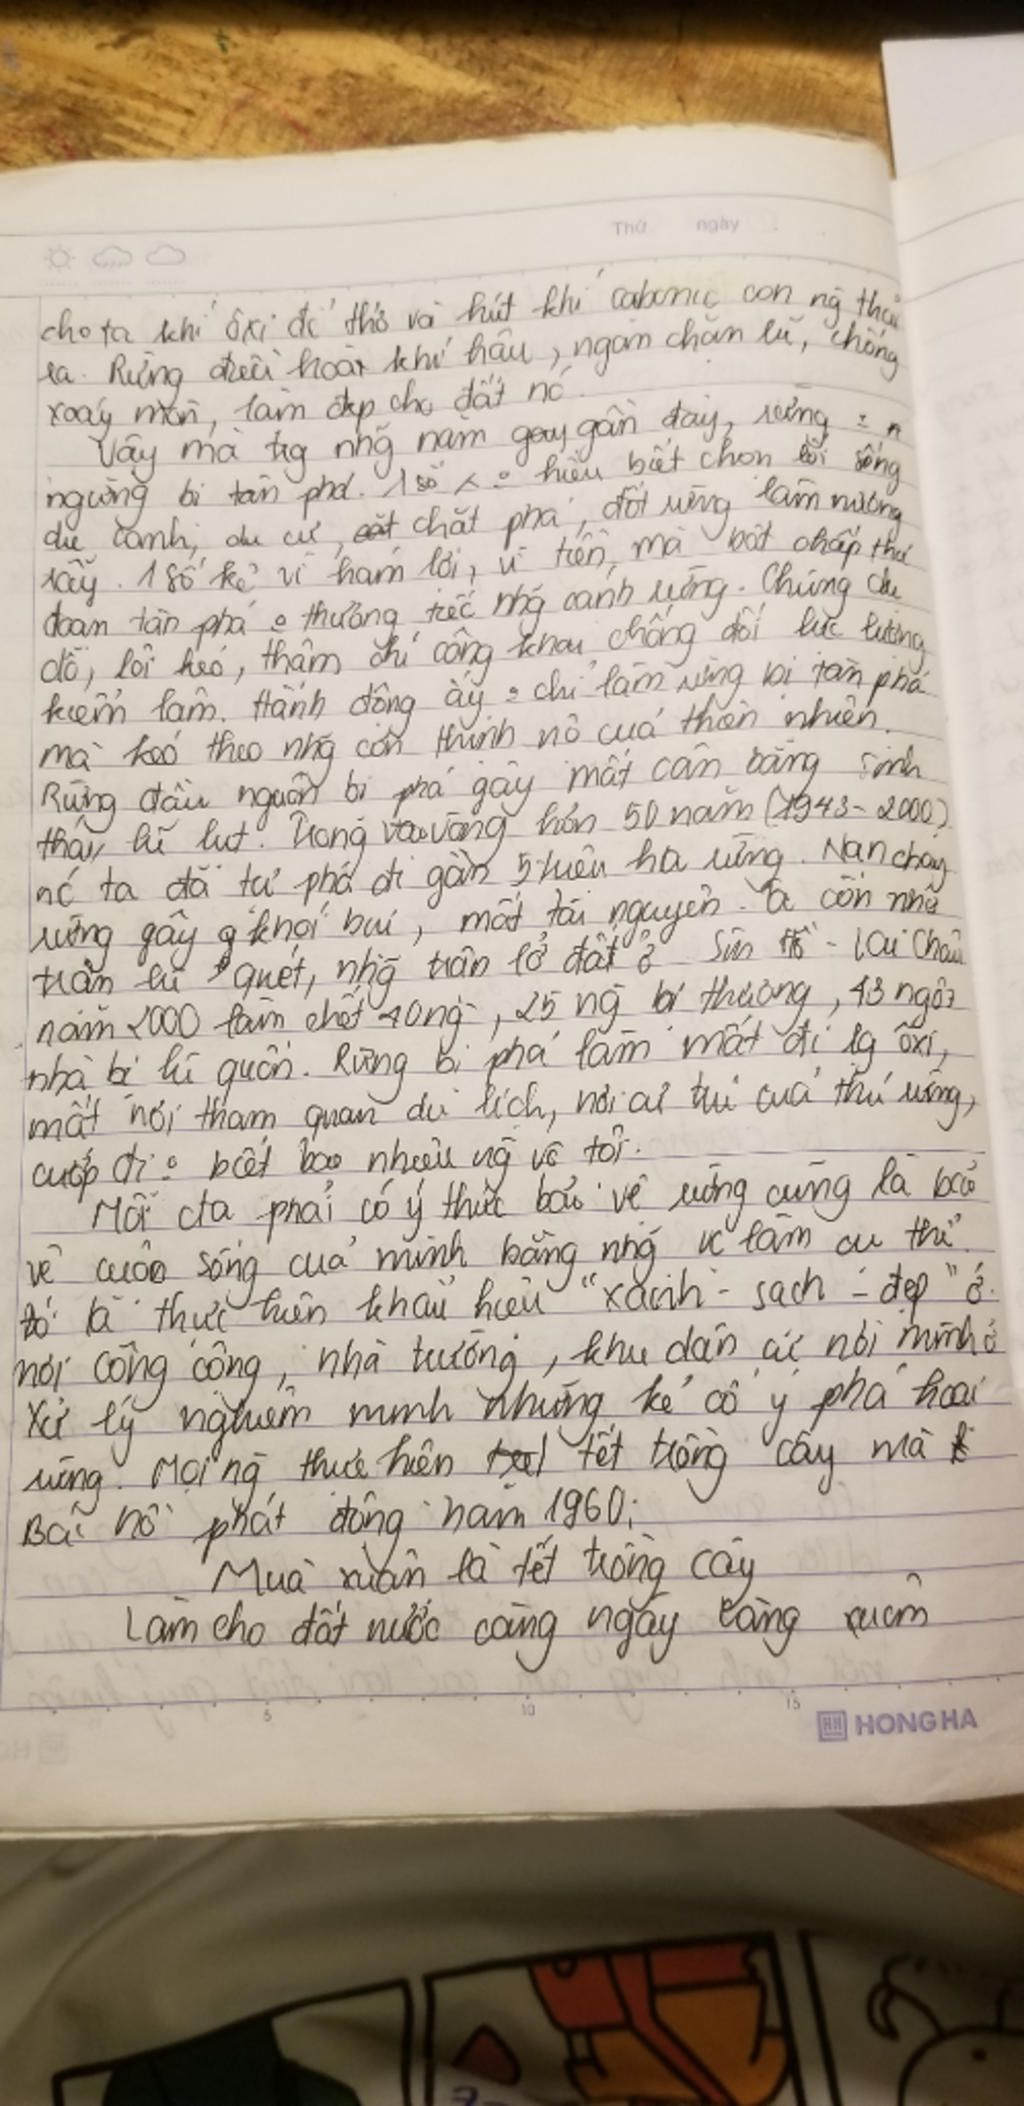 Thứ ngày
cho ta khí ôxi để thở và hút khí cabonic con ng thải
ra. Rừng điều hoà khí hậu, ngăn chặn lũ, chống
xoáy mòn, làm đẹp cho đất nc
Vậy mà tg nhg năm gần đây, rừng = n
ngừng bị tàn phá. 1 số hiểu biết chọn lối sống
du canh, du cư, chặt phá, đốt rừng làm nương
rẫy. 1 số kẻ vì ham lợi, vì tiền mà bất chấp thủ
đoạn tàn phá o thương tiếc nhg cánh rừng. Chúng dụ
dỗ, lôi kéo, thậm chí công khai chống đối lực lượng
kiểm lâm. Hành động ấy o chỉ làm rừng bị tàn phá
mà kéo theo nhg cơn thịnh nộ của thiên nhiên.
Rừng đầu nguồn bị phá gây mất cân bằng sinh
thái, lũ lụt. Trong vòng hơn 50 năm (1943-2000)
nc ta đã tự phá đi gần 5 triệu ha rừng. Nạn cháy
rừng gây khói bụi, mất tài nguyên. Ta còn nhớ
trận lũ quét, nhg trận lở đất ở Sìn Hồ - Lai Châu
năm 2000 làm chết 40 ng, 25 ng bị thương, 43 ngôi
nhà bị lũ quấn. Rừng bị phá làm mất đi lg ôxi,
mất nơi tham quan du lịch, nơi cư trú của thú rừng,
cướp đi o biết bao nhiêu ng vô tội.
Mỗi cta phải có ý thức bảo vệ rừng cũng là bảo
vệ cuộc sống của mình bằng nhg vc làm cụ thể.
Đó là thực hiện khẩu hiệu "xanh - sạch - đẹp" ở
nơi công cộng, nhà trường, khu dân cư nơi mình ở
Xử lý nghiêm minh những kẻ cố ý phá hoại
rừng. Mọi ng thực hiện tết trồng cây mà
Bác Hồ phát động năm 1960:
Mùa xuân là tết trồng cây
Làm cho đất nước càng ngày càng xuân
5 10 15
HH HONG HA